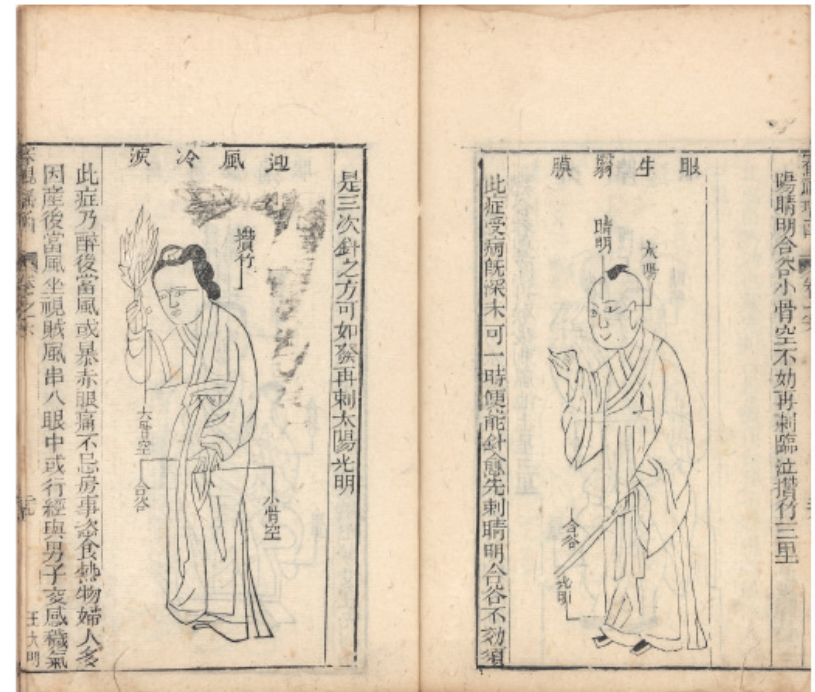 陽睛明合谷小骨空不効再刺臨泣攢竹三里
眼生翳膜
太陽
睛明
合谷
光明
此症受病旣深未可一時便能針愈先刺睛明合谷不効須
是三次針之方可如發再刺太陽光明
迎風冷淚
攢竹
小骨空
大骨空
合谷
此症乃醉後當風或暴赤眼痛不忌房事恣食熱物婦人多
因産後當風坐視賊風串入眼中或行經與男子交感穢氣